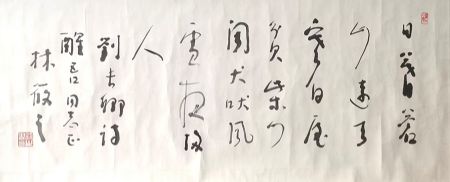 日暮蒼
山遠天
寒白屋
貧柴門
聞犬吠風
雪夜歸
人
劉長卿詩
同志正
林筱之